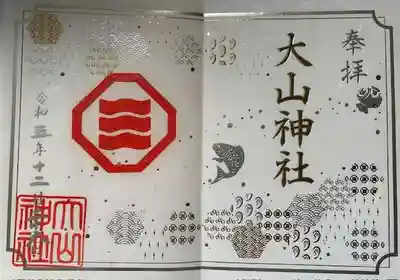 奉拝
大山神社
令和三年十二月
大山
神社